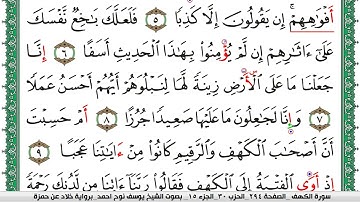 أَفْوَٰهِهِمْۚ إِن يَقُولُونَ إِلَّا كَذِبٗا ٥ فَلَعَلَّكَ بَٰخِعٞ نَّفْسَكَ
عَلَىٰٓ ءَاثَٰرِهِمْ إِن لَّمْ يُؤْمِنُوا۟ بِهَٰذَا ٱلْحَدِيثِ أَسَفًا ٦ إِنَّا
جَعَلْنَا مَا عَلَى ٱلْأَرْضِ زِينَةٗ لَّهَا لِنَبْلُوَهُمْ أَيُّهُمْ أَحْسَنُ عَمَلٗا
٧ وَإِنَّا لَجَٰعِلُونَ مَا عَلَيْهَا صَعِيدٗا جُرُزًا ٨ أَمْ حَسِبْتَ
أَنَّ أَصْحَٰبَ ٱلْكَهْفِ وَٱلرَّقِيمِ كَانُوا۟ مِنْ ءَايَٰتِنَا عَجَبًا ٩
إِذْ أَوَى ٱلْفِتْيَةُ إِلَى ٱلْكَهْفِ فَقَالُوا۟ رَبَّنَآ ءَاتِنَا مِن لَّدُنكَ رَحْمَةٗ
سورة الكهف _ صفحة ٢٩٤ _ الحزب ٣٠ _ الجزء ١٥ _ بصوت الشيخ يوسف نوح احمد _ برواية خلاد عن حمزة